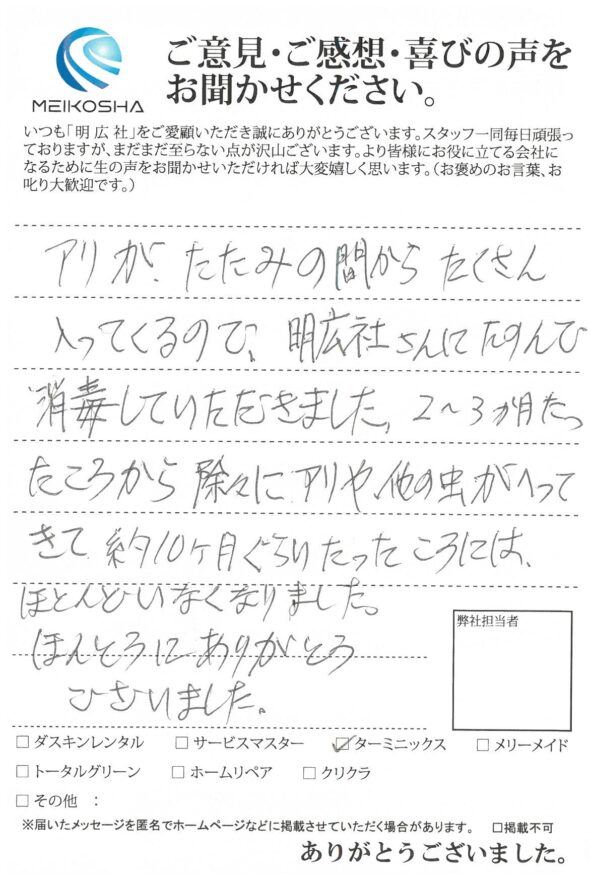 MEIKOSHA
ご意見・ご感想・喜びの声を
お聞かせください。
いつも「明広社」をご愛顧いただき誠にありがとうございます。スタッフ一同毎日頑張っ
ておりますが、まだまだ至らない点が沢山ございます。より皆様にお役に立てる会社に
なるために生の声をお聞かせいただければ大変嬉しく思います。（お褒めのお言葉、お
叱り大歓迎です。）
アリが、たたみの間からたくさん
入ってくるので、明広社さんにたのんで
消毒していただきました。2〜3か月たっ
たころから除々にアリや、他の虫がへって
きて、約10ヶ月ぐらいたったころには、
ほとんどいなくなりました。
ほんとうにありがとう
ございました。
弊社担当者
□ダスキンレンタル □サービスマスター ☑ターミニックス □メリーメイド
□トータルグリーン □ホームリペア □クリクラ
□その他 ：
※届いたメッセージを匿名でホームページなどに掲載させていただく場合があります。 □掲載不可
ありがとうございました。